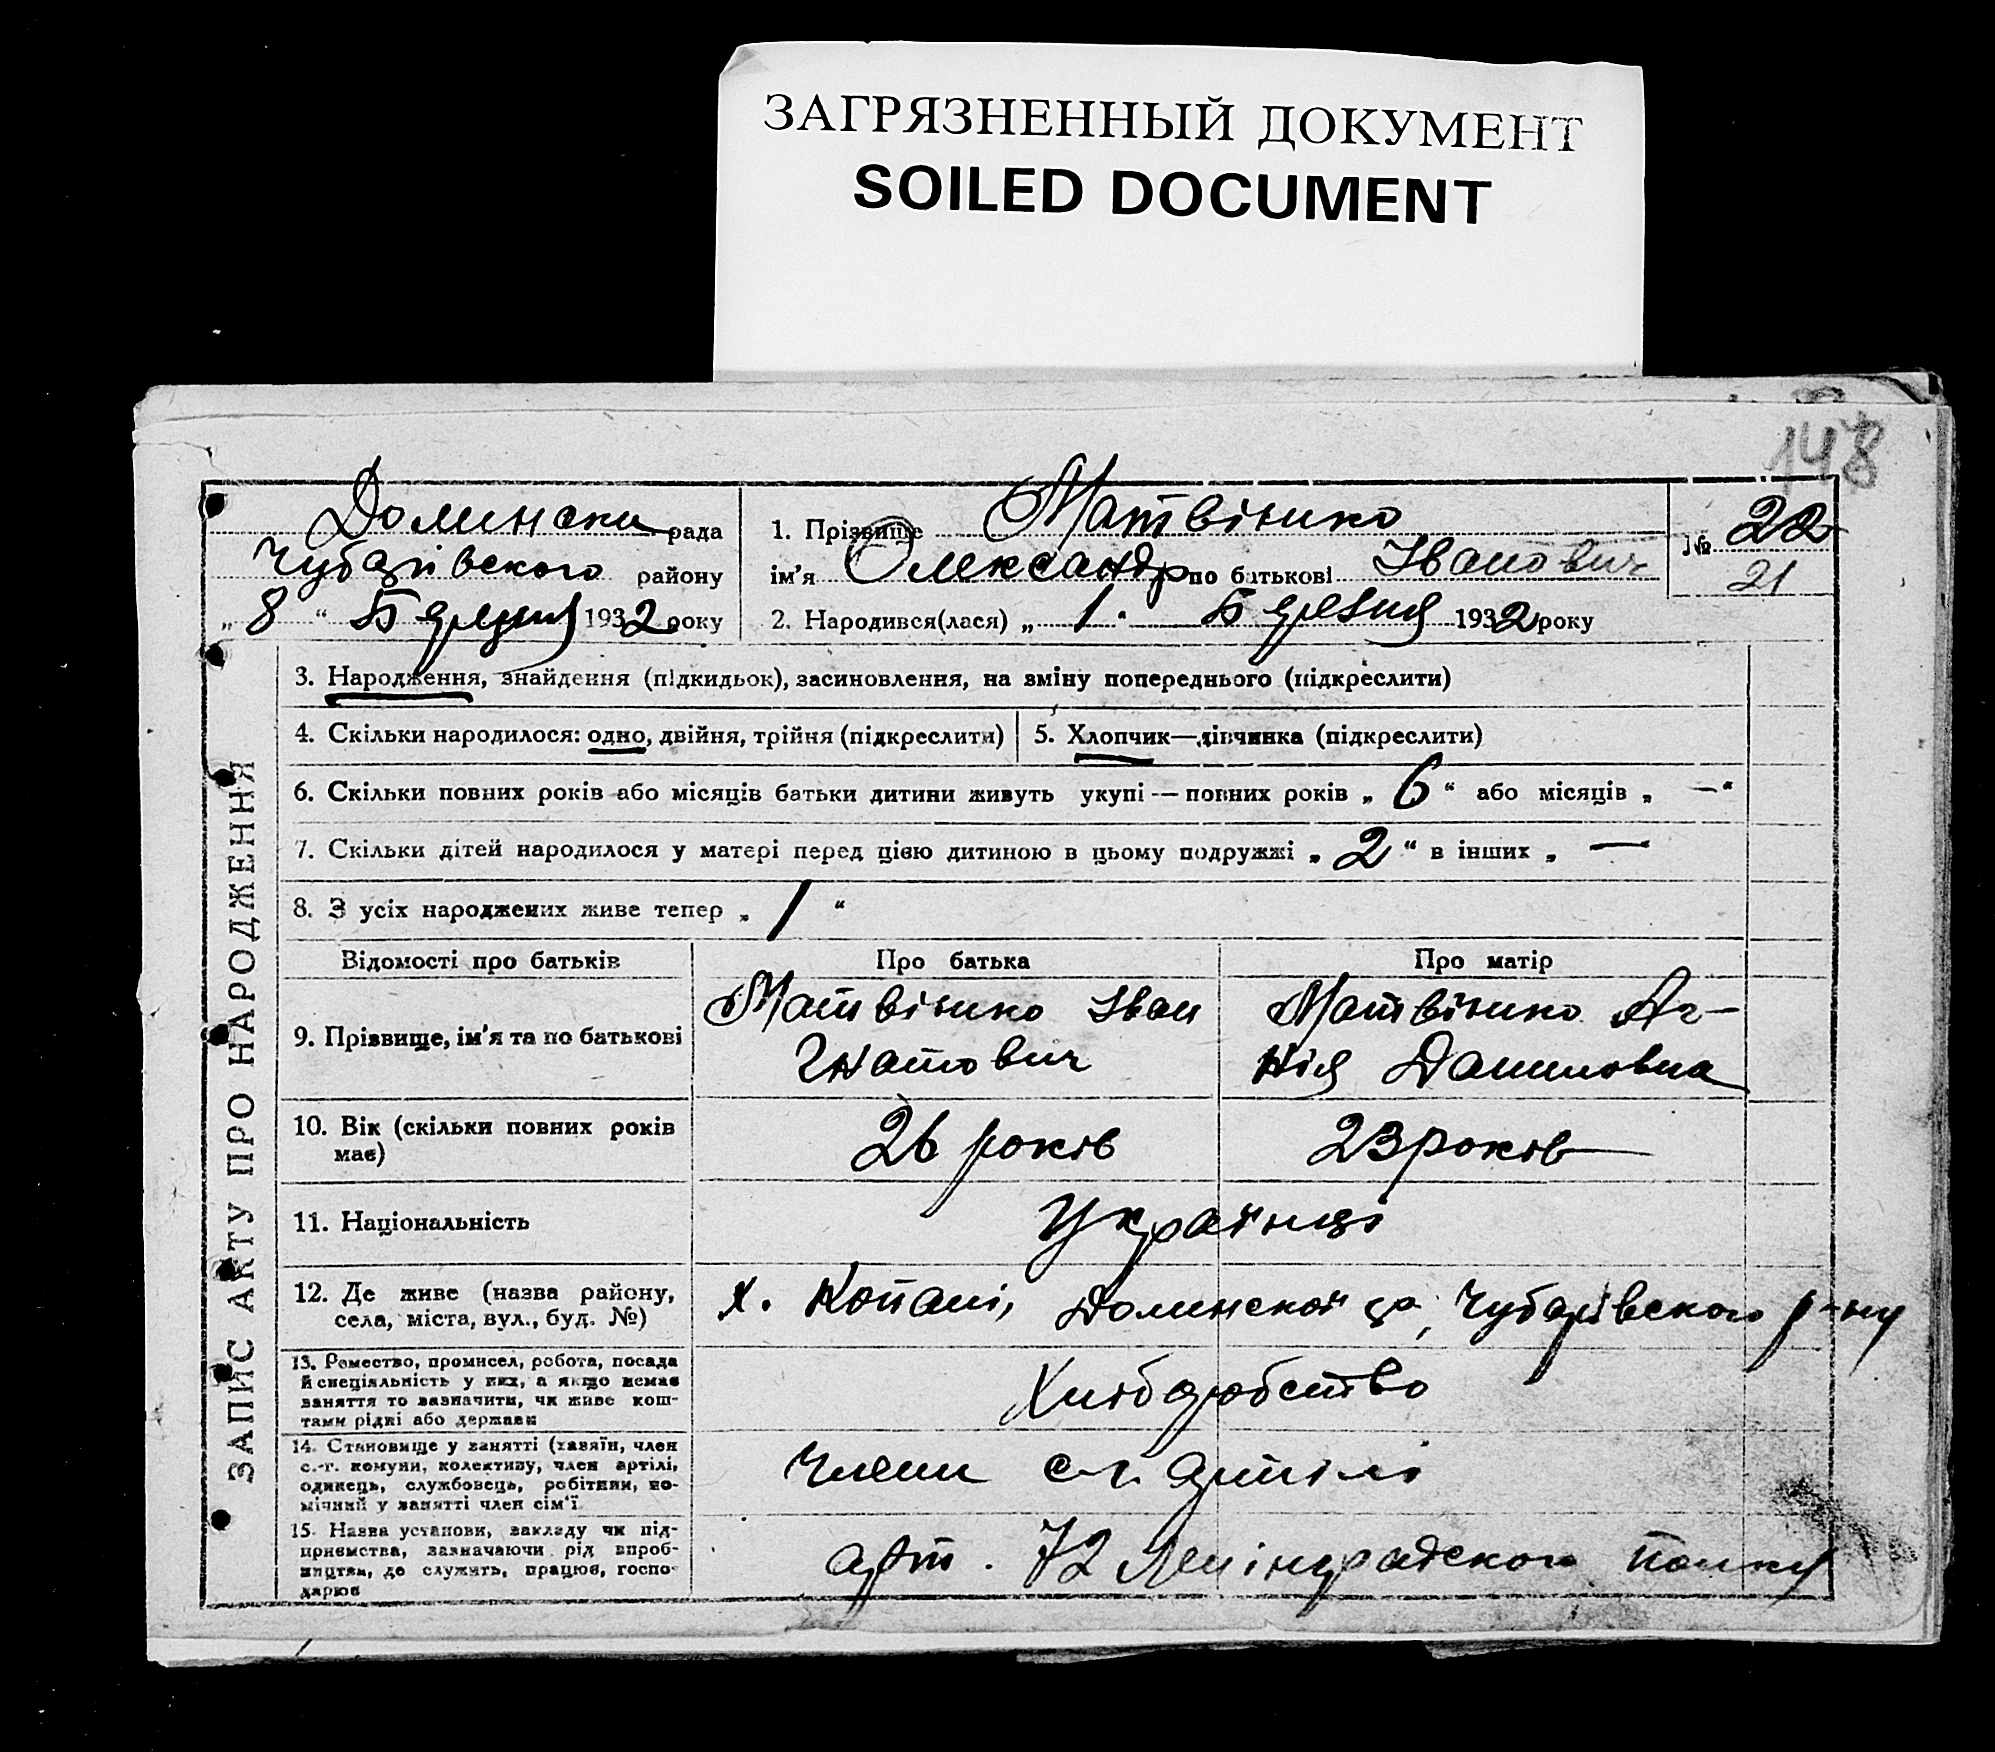 ЗАГРЯЗНЕННЫЙ ДОКУМЕНТ
SOILED DOCUMENT
148
Долинска рада
Чубарівського району
„ 8 “ Березня 1932 року
1. Прізвище Матвієнко
ім’я Олександр по батькові Іванович
2. Народився(лася) „ 1 “ Березня 1932 року
№ 22
21
ЗАПИС АКТУ ПРО НАРОДЖЕННЯ
3. Народження, знайдення (підкидьок), засиновлення, на зміну попереднього (підкреслити)
4. Скільки народилося: одно, двійня, трійня (підкреслити)
5. Хлопчик—дівчинка (підкреслити)
6. Скільки повних років або місяців батьки дитини живуть укупі — повних років „ 6 “ або місяців „ — “
7. Скільки дітей народилося у матері перед цією дитиною в цьому подружжі „ 2 “ в інших „ —
8. З усіх народжених живе тепер „ 1 “
Відомості про батьків Про батька Про матір
9. Прізвище, ім’я та по батькові
Матвієнко Іван
Гнатович
Матвієнко Аг-
нія Даниловна
10. Вік (скільки повних років
має)
26 років
23 років
11. Національність
Українці
12. Де живе (назва району,
села, міста, вул., буд. №)
х. Копані, Долинской Чубарівського р-ну
13. Ремество, промисел, робота, посада
й спеціяльність у них, а якщо немає
заняття то зазначити, чи живе кош-
тами рідні або держави
Хліборобство
14. Становище у занятті (хазяїн, член
с.-г. комуни, колективу, член артілі,
одинець, службовець, робітник, по-
мічний у занятті член сім’ї
Члени с-г. артілі
15. Назва установи, закладу чи під-
приємства, зазначаючи рід вироб-
ництва, де служить, працює, госпо-
дарює
арт. 72 Ленінградского полку